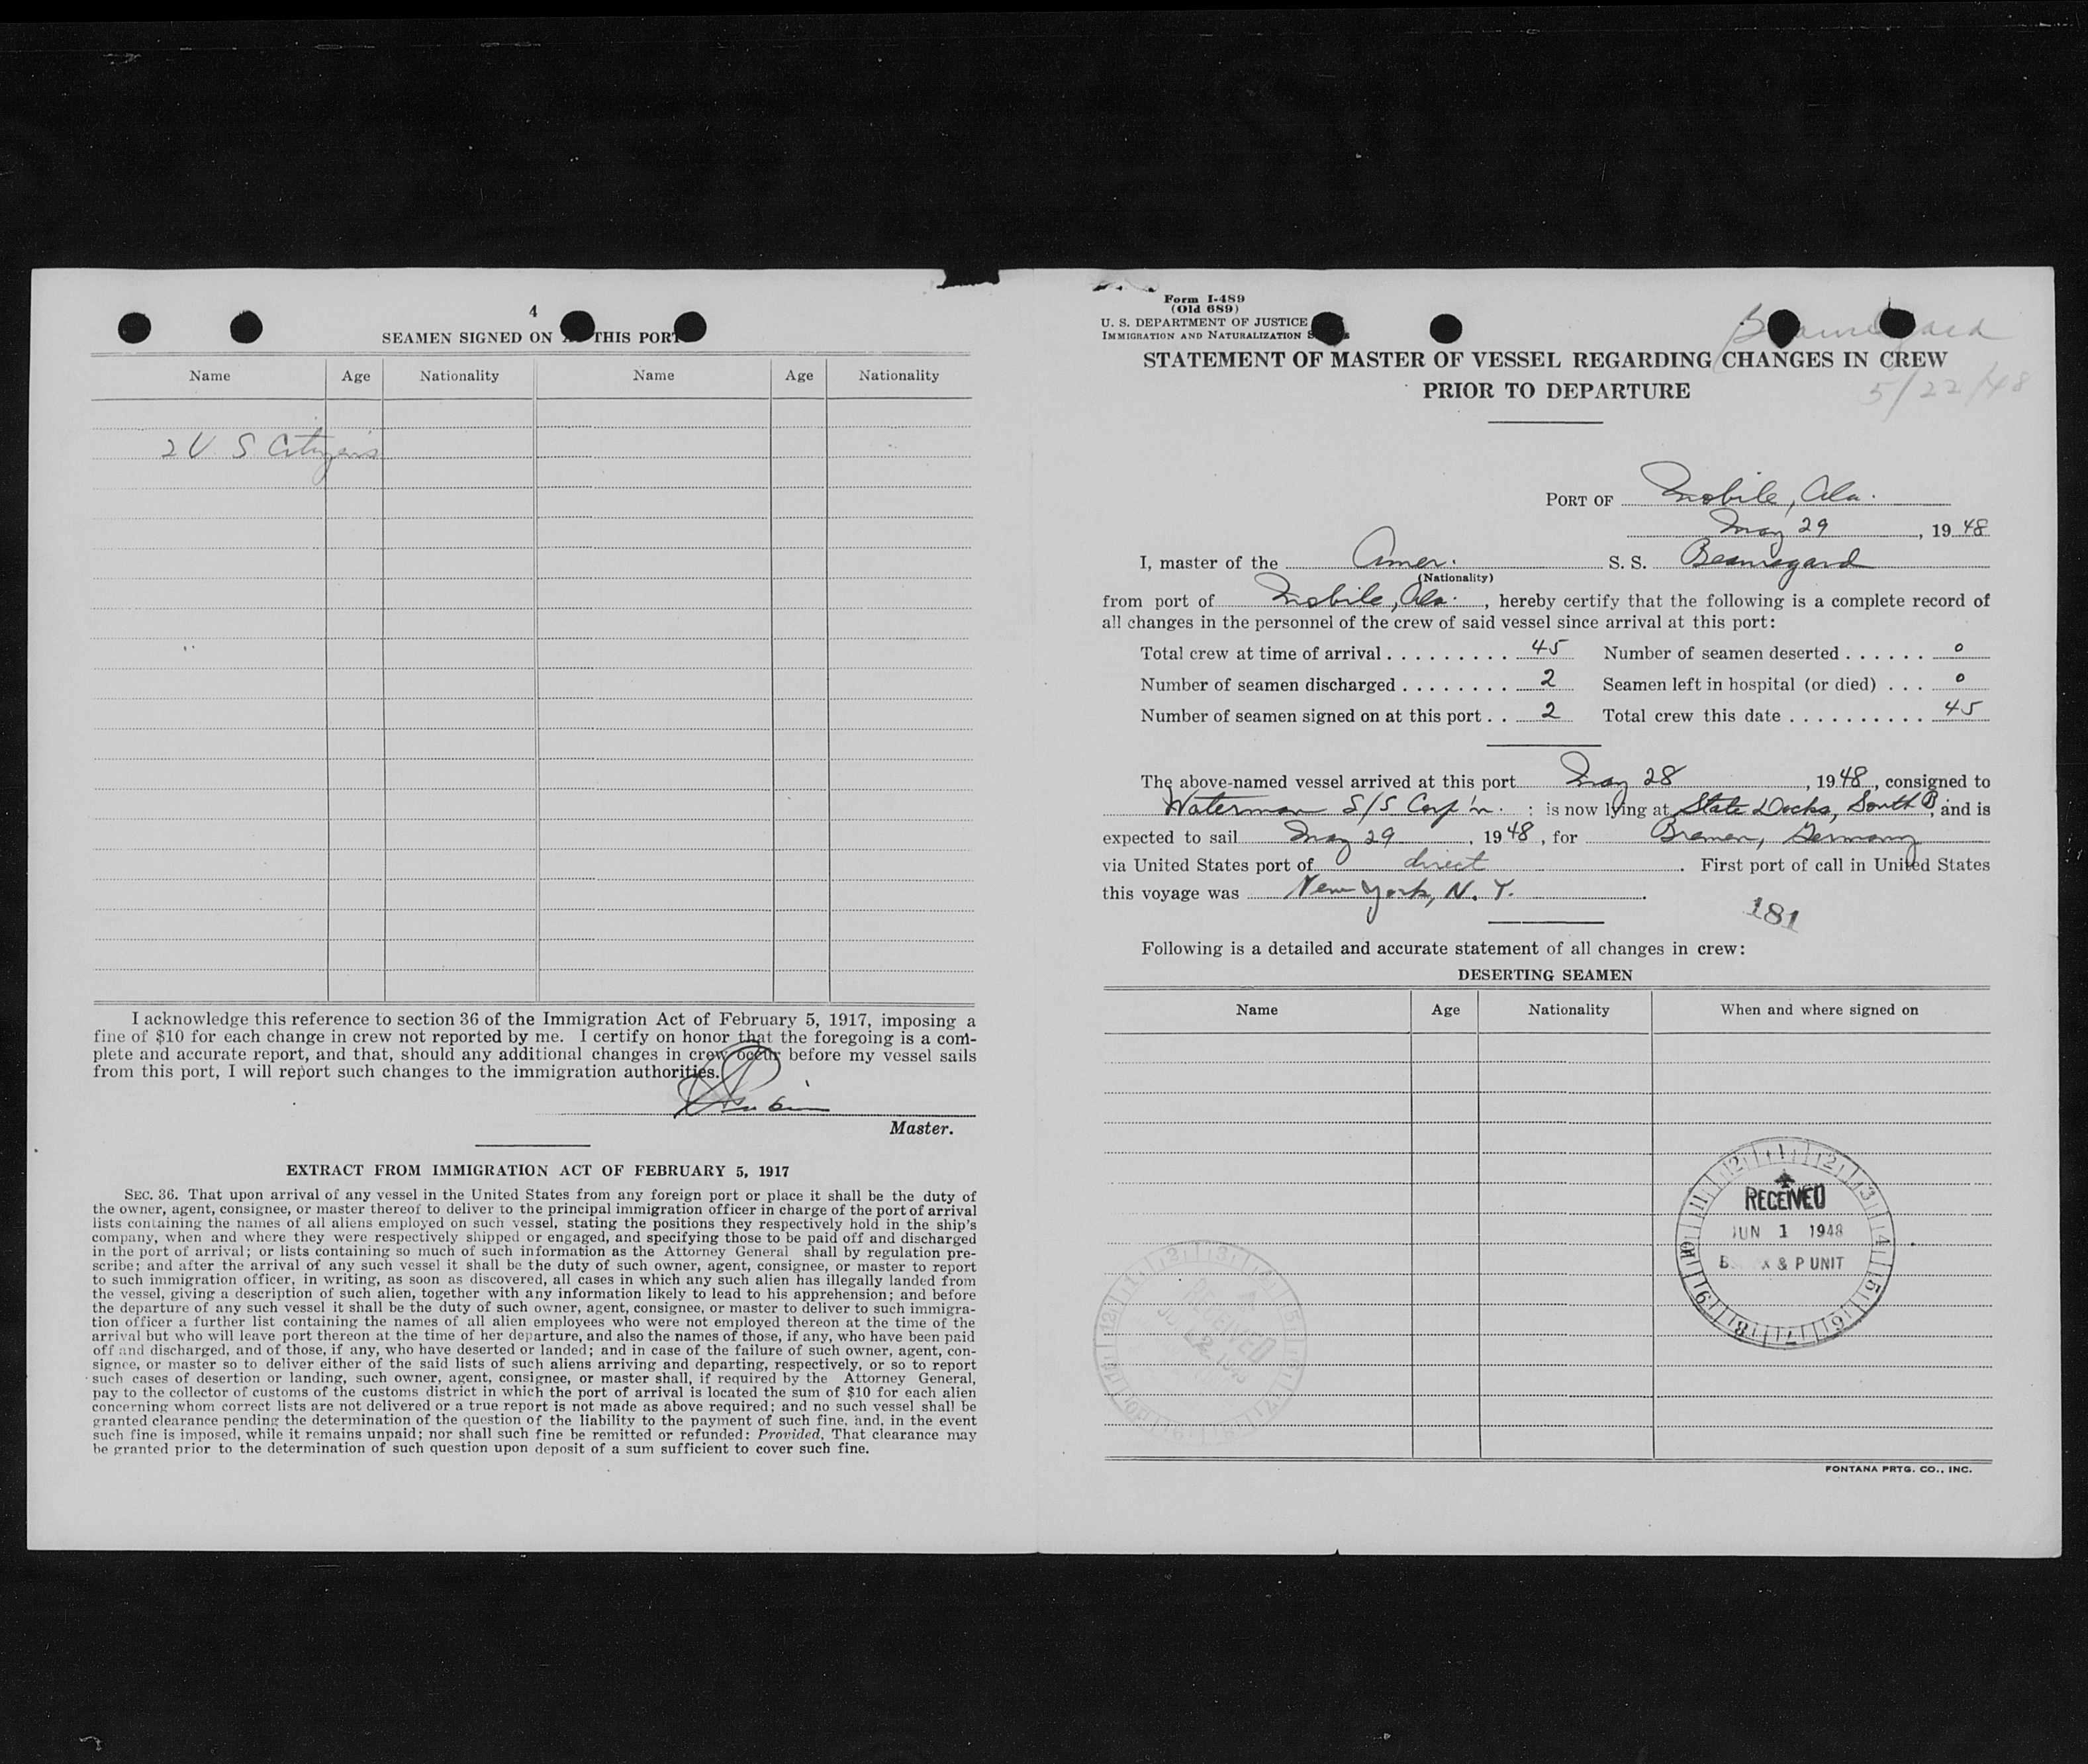 4
SEAMEN SIGNED ON THIS PORT
Name Age Nationality Name Age Nationality
2 U S Citizens
I acknowledge this reference to section 36 of the Immigration Act of February 5, 1917, imposing a
fine of $10 for each change in crew not reported by me. I certify on honor that the foregoing is a com-
plete and accurate report, and that, should any additional changes in crew occur before my vessel sails
from this port, I will report such changes to the immigration authorities.
Master.
EXTRACT FROM IMMIGRATION ACT OF FEBRUARY 5, 1917
SEC. 36. That upon arrival of any vessel in the United States from any foreign port or place it shall be the duty of
the owner, agent, consignee, or master thereof to deliver to the principal immigration officer in charge of the port of arrival
lists containing the names of all aliens employed on such vessel, stating the positions they respectively hold in the ship's
company, when and where they were respectively shipped or engaged, and specifying those to be paid off and discharged
in the port of arrival; or lists containing so much of such information as the Attorney General shall by regulation pre-
scribe; and after the arrival of any such vessel it shall be the duty of such owner, agent, consignee, or master to report
to such immigration officer, in writing, as soon as discovered, all cases in which any such alien has illegally landed from
the vessel, giving a description of such alien, together with any information likely to lead to his apprehension; and before
the departure of any such vessel it shall be the duty of such owner, agent, consignee, or master to deliver to such immigra-
tion officer a further list containing the names of all alien employees who were not employed thereon at the time of the
arrival but who will leave port thereon at the time of her departure, and also the names of those, if any, who have been paid
off and discharged, and of those, if any, who have deserted or landed; and in case of the failure of such owner, agent, con-
signee, or master so to deliver either of the said lists of such aliens arriving and departing, respectively, or so to report
such cases of desertion or landing, such owner, agent, consignee, or master shall, if required by the Attorney General,
pay to the collector of customs of the customs district in which the port of arrival is located the sum of $10 for each alien
concerning whom correct lists are not delivered or a true report is not made as above required; and no such vessel shall be
granted clearance pending the determination of the question of the liability to the payment of such fine, and, in the event
such fine is imposed, while it remains unpaid; nor shall such fine be remitted or refunded: Provided, That clearance may
be granted prior to the determination of such question upon deposit of a sum sufficient to cover such fine.
Form I-489
(Old 689)
U. S. DEPARTMENT OF JUSTICE
IMMIGRATION AND NATURALIZATION
Beauregard
5/22/48
STATEMENT OF MASTER OF VESSEL REGARDING CHANGES IN CREW
PRIOR TO DEPARTURE
PORT OF Mobile, Ala.
May 29, 1948
I, master of the Amer. S. S. Beauregard
(Nationality)
from port of Mobile, Ala., hereby certify that the following is a complete record of
all changes in the personnel of the crew of said vessel since arrival at this port:
Total crew at time of arrival . . . . . . . . . 45 Number of seamen deserted . . . . . . 0
Number of seamen discharged . . . . . . . . 2 Seamen left in hospital (or died) . . . 0
Number of seamen signed on at this port . . 2 Total crew this date . . . . . . . . . . . 45
The above-named vessel arrived at this port May 28, 1948, consigned to
Waterman S/S Corp'n. : is now lying at State Docks, South B, and is
expected to sail May 29, 1948, for Bremen, Germany
via United States port of direct. First port of call in United States
this voyage was New York, N. Y.
181
Following is a detailed and accurate statement of all changes in crew:
DESERTING SEAMEN
Name Age Nationality When and where signed on
RECEIVED
JUN 1 1948
& P UNIT
RECEIVED
FONTANA PRTG. CO., INC.